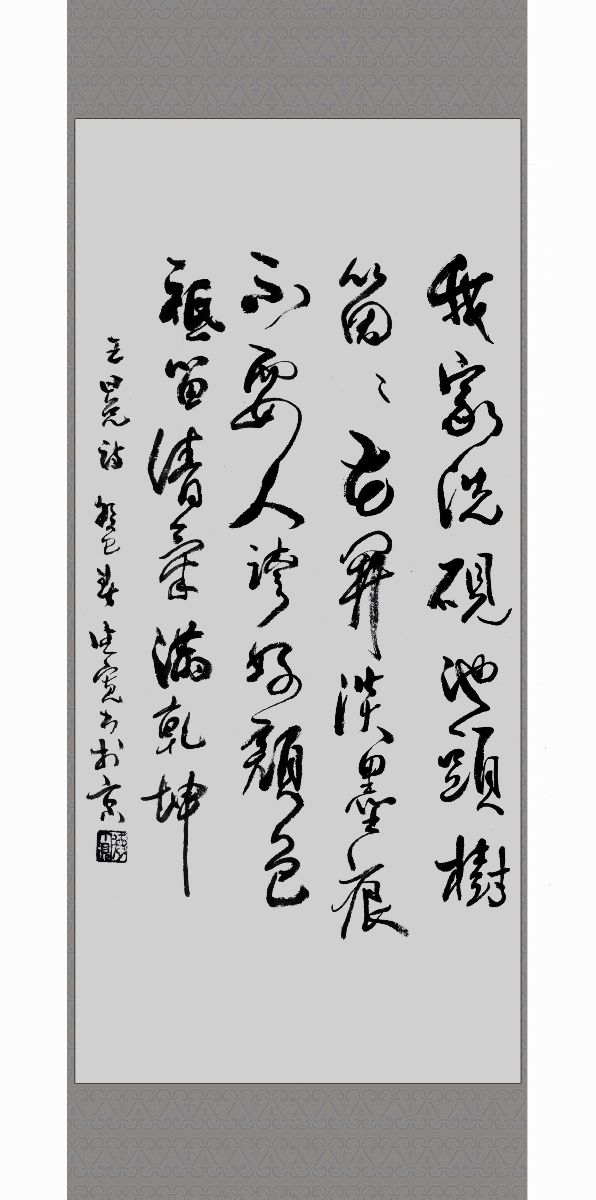 我家洗硯池頭樹
箇〻花開淡墨痕
不要人誇好顏色
祗留清氣滿乾坤
王冕詩 癸巳春 寬書於京